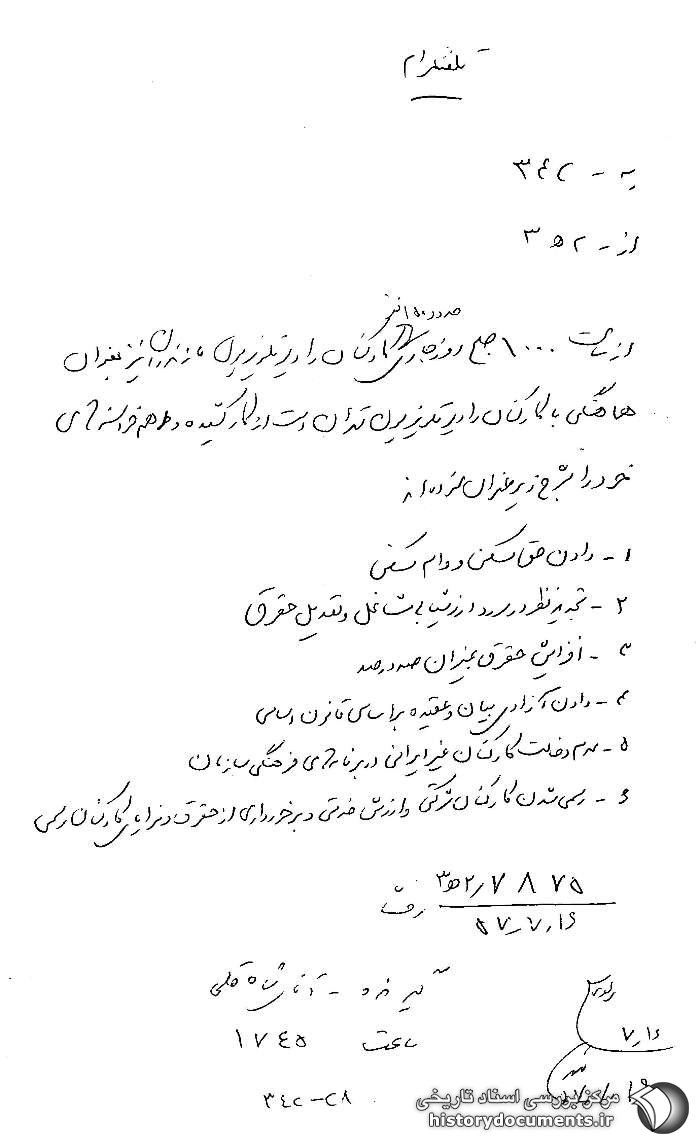 تلفنگرام
به - ۳۴۲
از - ۳۵۲
حدود ۱۵۰ نفر
از ساعت ۱۰۰۰ صبح روز جاری کارکنان رادیو تلویزیون مازندران نیز بعنوان
هماهنگی با کارکنان رادیو تلویزیون تهران دست از کار کشیده و اهم خواسته‌های
خود را بشرح زیر عنوان نموده‌اند
۱ - دادن حق مسکن و وام مسکن
۲ - تجدید نظر در مورد ارزشیابی مشاغل و تعدیل حقوق
۳ - افزایش حقوق بمیزان صد درصد
۴ - دادن آزادی بیان و عقیده بر اساس قانون اساسی
۵ - عدم دخالت کارکنان غیر ایرانی در برنامه‌های فرهنگی سازمان
۶ - رسمی شدن کارکنان شرکتی و ارزش خدمتی و برخورداری از حقوق و مزایای کارکنان رسمی
۳۵۲٫۷۸۷۵
۵۷٫۷٫۱۶
گیرنده - آقای شاهقلی
ساعت ۱۷۴۵
۷٫۱۶
۳۴۲-۲۸
مرکز بررسی اسناد تاریخی
historydocuments.ir